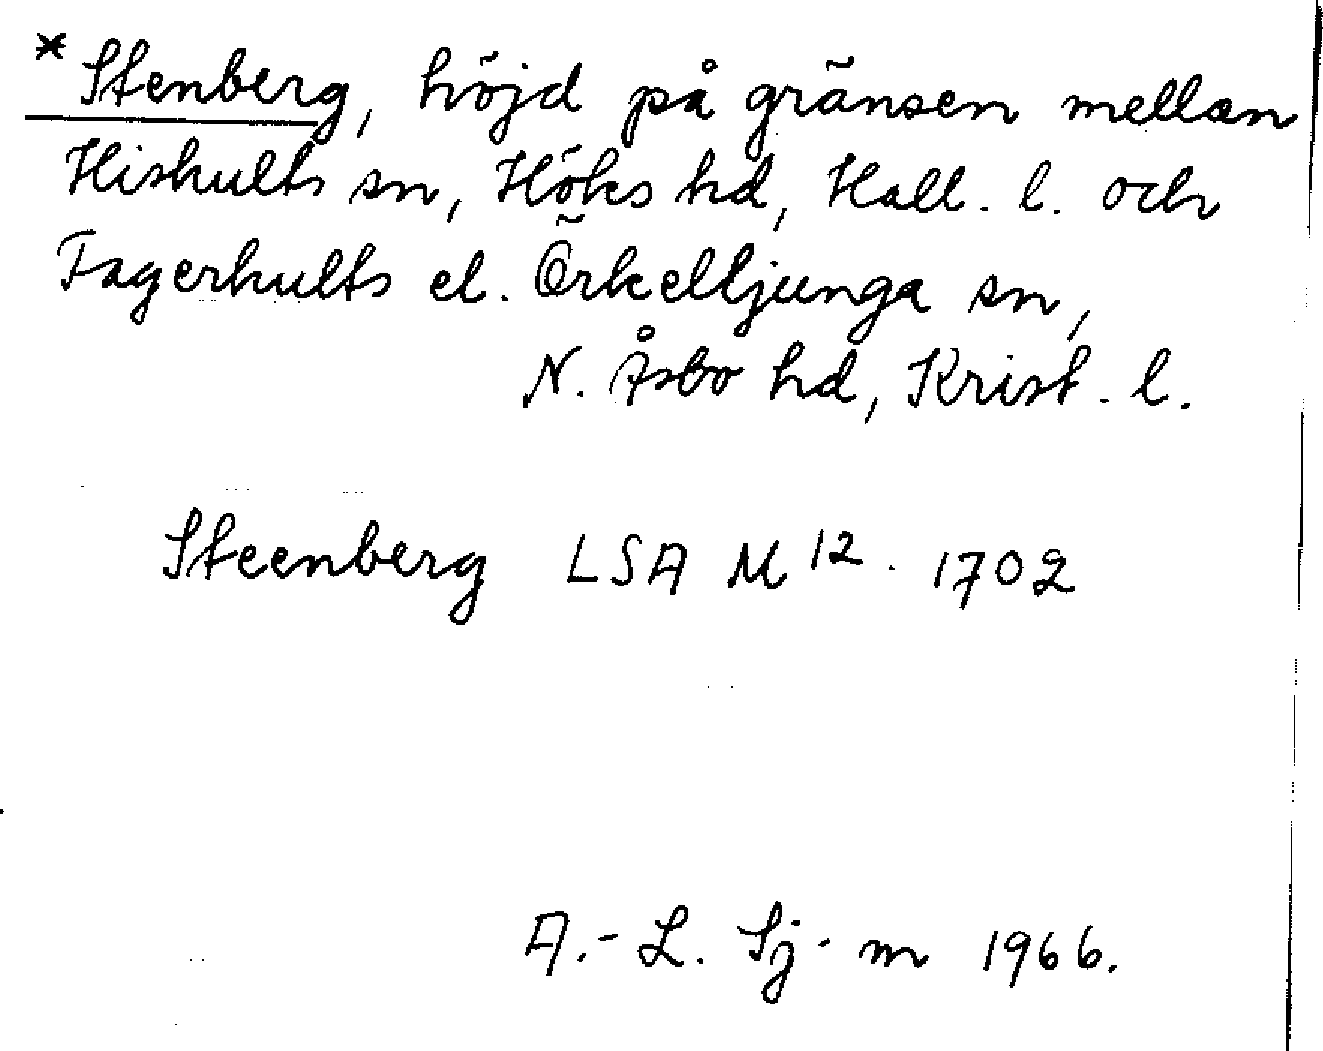 *Stenberg, höjd på gränsen mellan
Hishults sn, Höks hd, Hall. l. och
Fagerhults el. Örkelljunga sn,
N. Åsbo hd, Krist. l.
Steenberg LSA M 12. 1702
A.-L. Sj-m 1966.